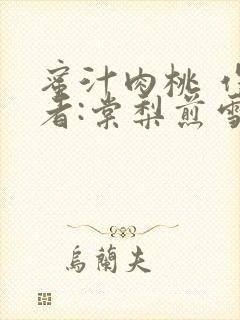 蜜汁肉桃
者:棠梨煎雪
烏蘭夫